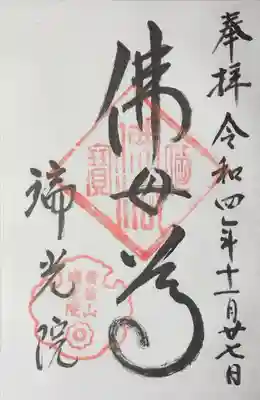 奉拝 令和四年十一月廿七日
佛母尊
瑞光院